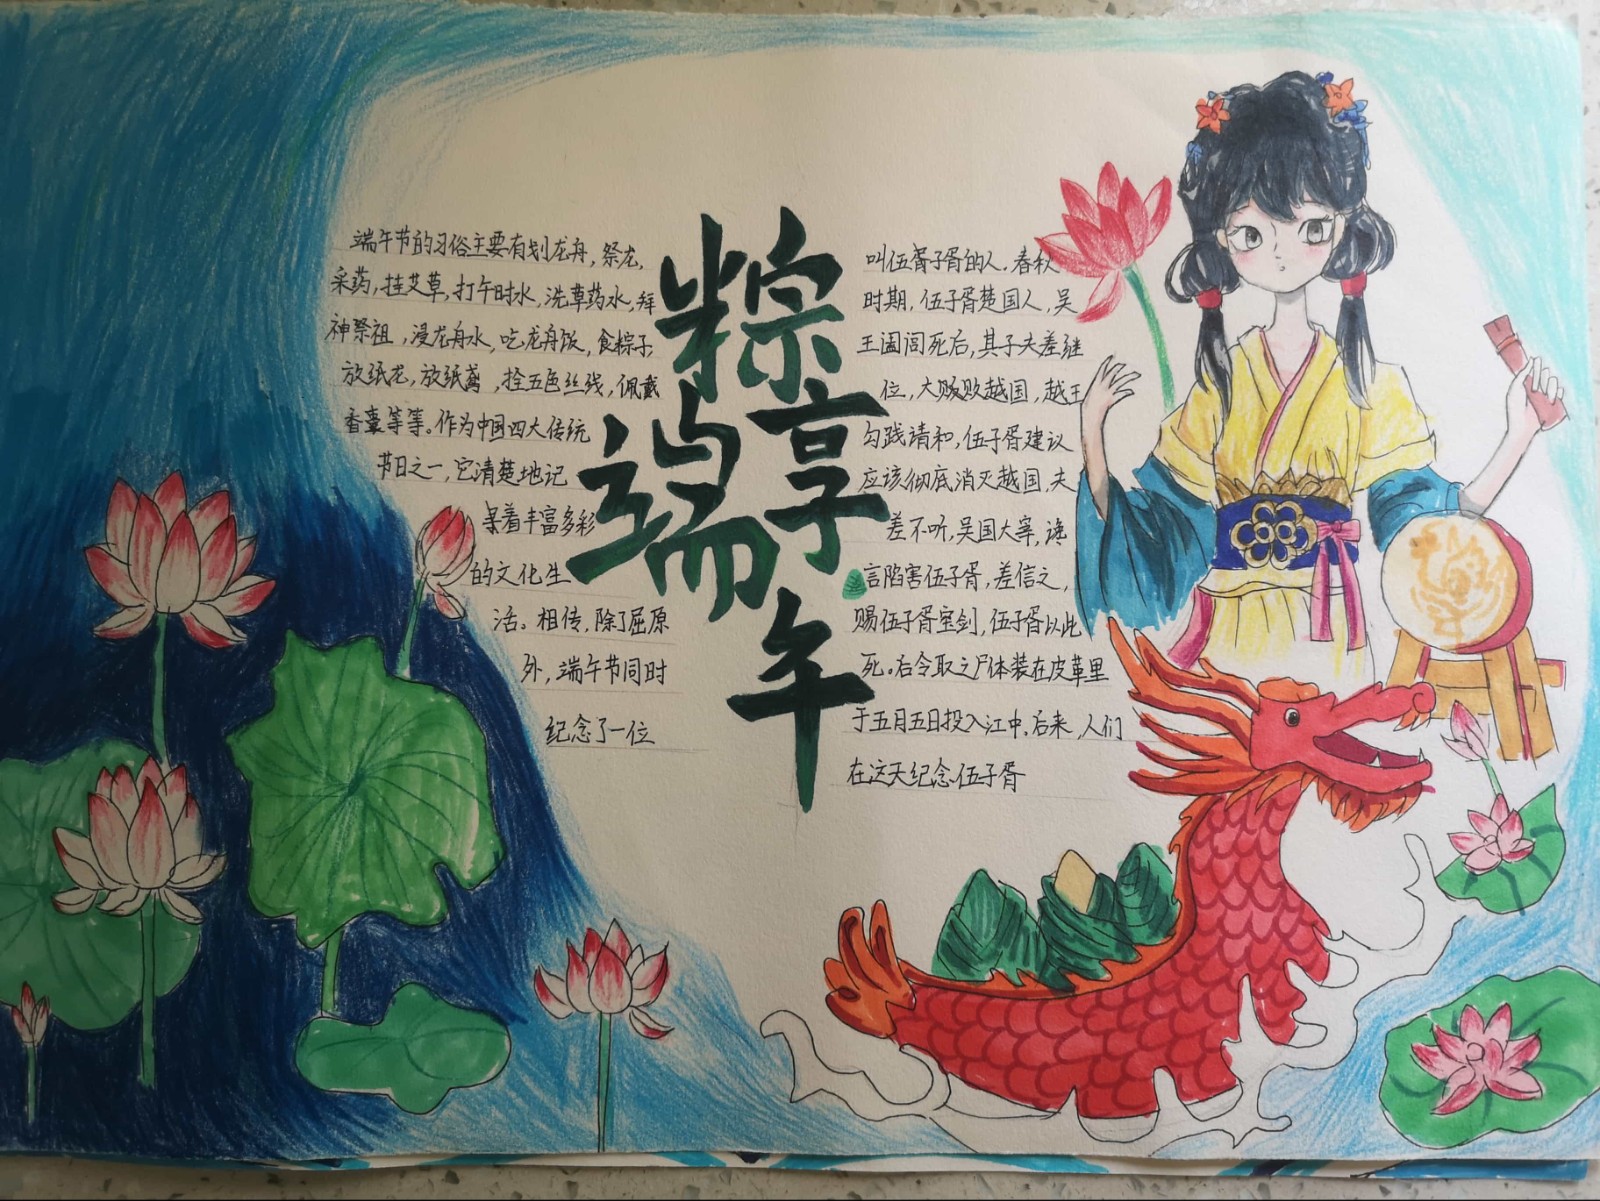 粽享
端午
端午节的习俗主要有划龙舟,祭龙,
采药,挂艾草,打午时水,洗草药水,拜
神祭祖,浸龙舟水,吃龙舟饭,食粽子,
放纸龙,放纸鸢,拴五色丝线,佩戴
香囊等等。作为中国四大传统
节日之一,它清楚地记
录着丰富多彩
的文化生
活。相传,除了屈原
外,端午节同时
纪念了一位
叫伍胥子胥的人.春秋
时期,伍子胥楚国人,吴
王阖闾死后,其子夫差继
位,大贩败越国,越王
勾践请和,伍子胥建议
应该彻底消灭越国,夫
差不听,吴国大宰,谗
言陷害伍子胥,差信之,
赐伍子胥宝剑,伍子胥以此
死。后令取之尸体装在皮革里
于五月五日投入江中.后来,人们
在这天纪念伍子胥